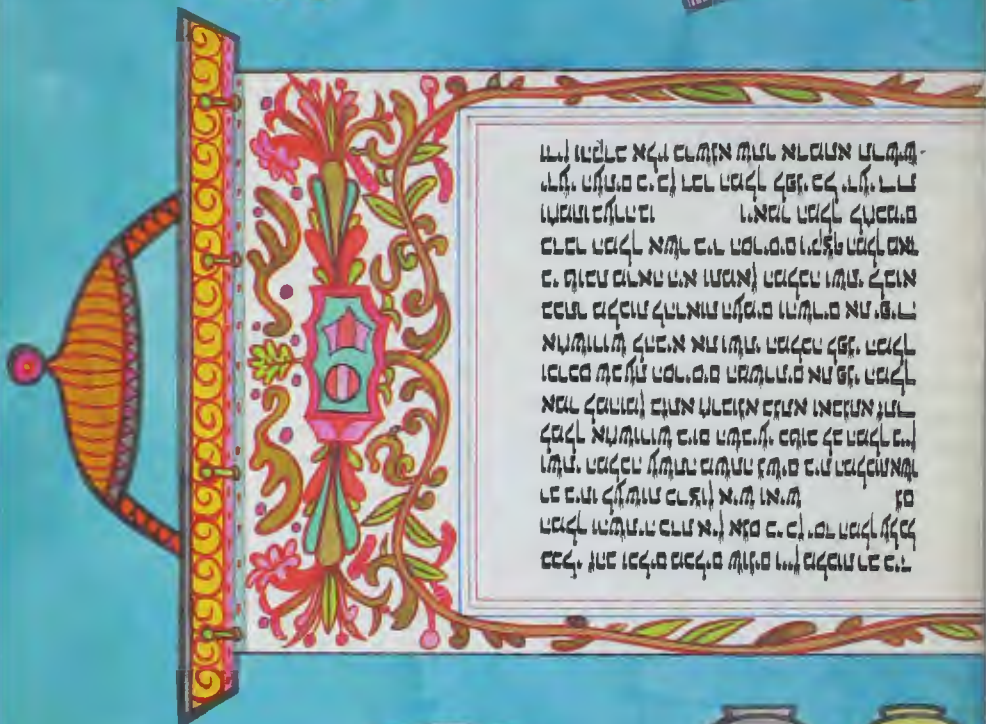 בכלי זהב וכלים מכלים שונים ויין מלכות רב כיד
המלך והשתיה כדת אין אנס כי כן יסד המלך על כל
רב ביתו לעשות כרצון איש ואיש גם
ושתי המלכה עשתה משתה נשים בית המלכות אשר
למלך אחשורוש ביום השביעי כטוב לב המלך ביין
אמר למהומן בזתא חרבונא בגתא ואבגתא זתר
וכרכס שבעת הסריסים המשרתים את פני המלך
אחשורוש להביא את ושתי המלכה לפני המלך
בכתר מלכות להראות העמים והשרים את יפיה
כי טובת מראה היא ותמאן המלכה ושתי לבוא
בדבר המלך אשר ביד הסריסים ויקצף המלך מאד
וחמתו בערה בו ויאמר המלך לחכמים
ידעי העתים כי כן דבר המלך לפני כל ידעי דת
ודין והקרב אליו כרשנא שתר אדמתא תרשיש